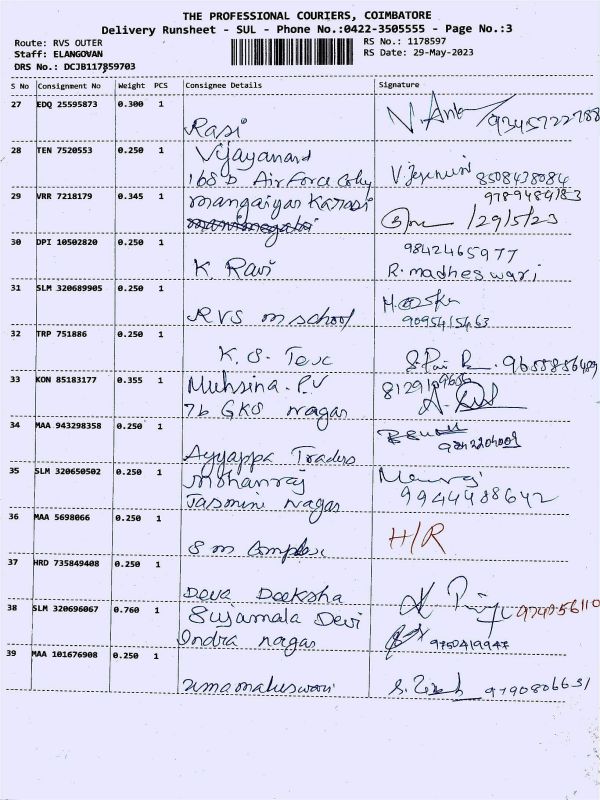 THE PROFESSIONAL COURIERS, COIMBATORE
Delivery Runsheet - SUL - Phone No.:0422-3505555 - Page No.:3
Route: RVS OUTER RS No.: 1178597
Staff: ELANGOVAN RS Date: 29-May-2023
DRS No.: DCJB117859703
S No Consignment No Weight PCS Consignee Details Signature
27 EDQ 25595873 0.300 1
Rasi 9345722788
28 TEN 7520553 0.250 1 Vijayanand
168 D Air Force Coly 8508438084
29 VRR 7218179 0.345 1 mangaiyar Karasi 9789484183
/29/5/23
30 DPI 10502820 0.250 1 9842465977
K. Ravi R. madheswari
31 SLM 320689905 0.250 1
RVS m school 9095415463
32 TRP 751886 0.250 1
K. S. Tex
33 KON 85183177 0.355 1 Muhsina. P.V
7b GKS nagar
34 MAA 943298358 0.250 1
Ayyappa Traders
35 SLM 320650502 0.250 1 Mohanraj
Jasmini Nagar 9944488642
36 MAA 5698066 0.250 1
S m Complex H/R
37 HRD 735849408 0.250 1
Deva Deeksha
38 SLM 320696067 0.760 1 Sujamala Devi
Indra nagar 9750419947
39 MAA 101676908 0.250 1
umamaheswari 9790806631